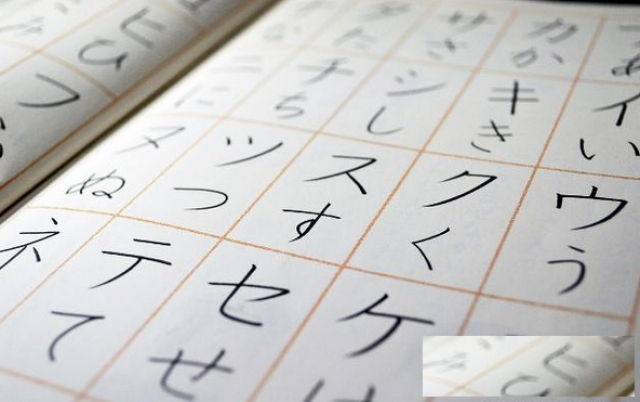 あイいウう
カかキきクくケ
サさシしスすセせ
タたチちツつテて
にヌぬネ
ヒひフ